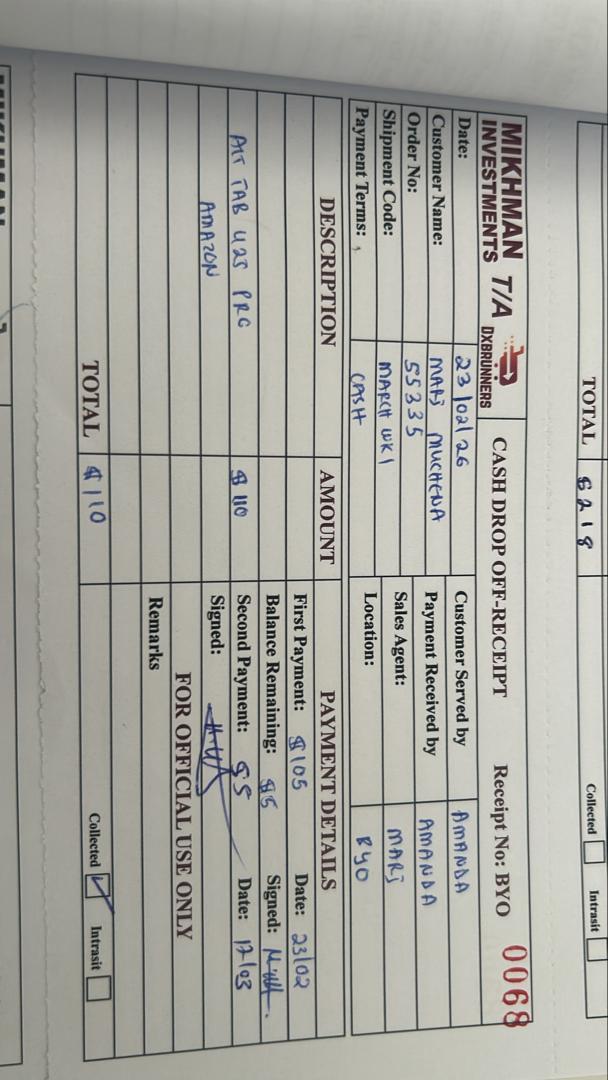 TOTAL $218
Collected Intrasit
MIKHMAN T/A
INVESTMENTS DXBRUNNERS
CASH DROP OFF-RECEIPT Receipt No: BYO 0068
Date: 23/02/26 Customer Served by AMANDA
Customer Name: MARJ MUCHENA Payment Received by AMANDA
Order No: 55335 Sales Agent: MARJ
Shipment Code: MARCH WK1 Location: BYO
Payment Terms: CASH
DESCRIPTION AMOUNT PAYMENT DETAILS
First Payment: $105 Date: 23/02
Balance Remaining: $5 Signed:
ATT TAB U25 PRG $110 Second Payment: $5 Date: 17/03
AMAZON Signed:
FOR OFFICIAL USE ONLY
Remarks
TOTAL $110 Collected Intrasit
MIKHMAN